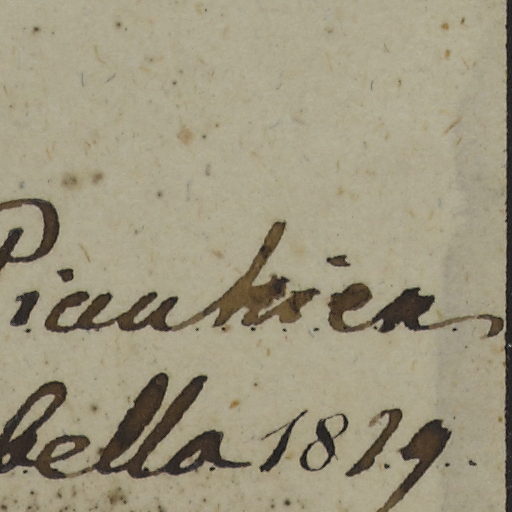 Piauhien
bella 1819.